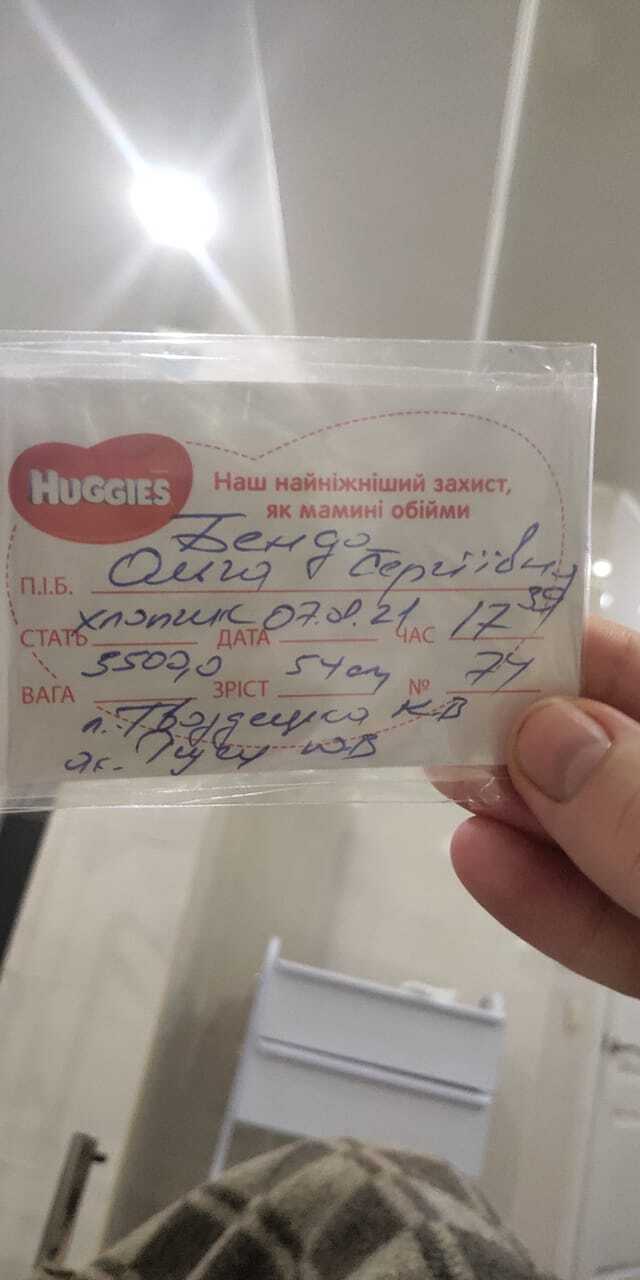 HUGGIES
Наш найніжніший захист,
як мамині обійми
Бенда
П.І.Б. Ольга Сергіївна
СТАТЬ хлопчик ДАТА 07.01.21 ЧАС 17 39
ВАГА 3500,0 ЗРІСТ 54 см № 74
л. Гвоздецька Ю.В
ак. Гуцу Ю.В